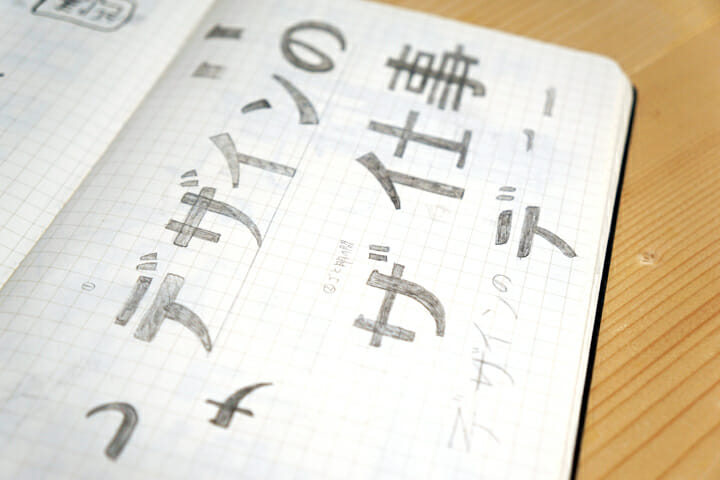 ①
デザインの
ザ
仕事
デ
デザインの